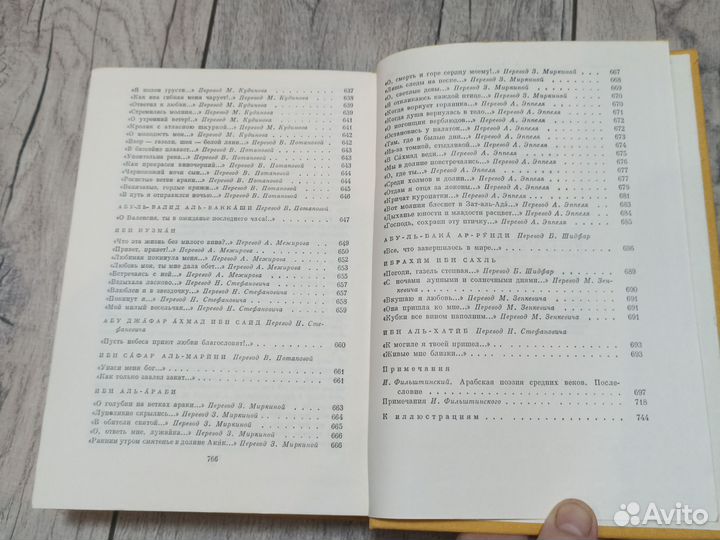 «Я полон грусти...» Перевод М. Кудинова 637
«Как она гибкая меня чарует!» Перевод М. Кудинова 638
«Ответил я любви...» Перевод М. Кудинова 639
«Стремились молнии...» Перевод М. Кудинова 639
«О утренний ветер!» Перевод М. Кудинова 641
«Кролик с атласною шкуркой...» Перевод М. Кудинова 641
«О молодость моя...» Перевод М. Кудинова 641
«Взор — газели, шея — белой лани...» Перевод В. Потаповой 641
«В бассейне плавает...» Перевод В. Потаповой 642
«Упоительна река...» Перевод В. Потаповой 643
«Как прекрасен виночерпий...» Перевод В. Потаповой 644
«Чернооокой ночи сын...» Перевод В. Потаповой 644
«Росистые ветви араки...» Перевод В. Потаповой 644
«Величавые, гордые кряжи...» Перевод В. Потаповой 645
«В путь я отправился ночью...» Перевод В. Потаповой 646
АБУ-ЛЬ-ВАЛИД АЛЬ-ВАККАШИ Перевод В. Потаповой
«О Валенсия, ты в ожиданье последнего часа!.. 647
ИБН КУЗМАН
«Что эта жизнь без милого вина?..» Перевод А. Межирова 649
«Привет, привет!» Перевод А. Межирова 651
«Любимая покинула меня...» Перевод А. Межирова 652
«Любовь моя, ты мне дала обет...» Перевод А. Межирова 653
«Встречаясь с ней...» Перевод А. Межирова 655
«Вздыхала ласково...» Перевод Н. Стефановича 657
«Влюблен я в звездочку...» Перевод Н. Стефановича 658
«Покинут я...» Перевод Н. Стефановича 658
«Мой милый весельчак...» Перевод Н. Стефановича 659
АБУ ДЖАФАР АХМАД ИБН САИД Перевод Н. Сте-
фановича
«Пусть небеса приют любви благословят!.. 660
ИБН САФАР АЛЬ-МАРИНИ Перевод В. Потаповой
«Упаси меня бог... 661
«Как только завлел закат... 661
ИБН АЛЬ-АРАБИ
«О голубки на ветках араки...» Перевод З. Миркиной 663
«Луноликие скрылись...» Перевод З. Миркиной 664
«В обители святой...» Перевод З. Миркиной 665
«О, ответь мне, лужайка...» Перевод З. Миркиной 666
«Ранним утром смятенье в долине Акик...» Перевод З. Миркиной 666
766
«О, смерть и горе сердцу моему!..» Перевод З. Миркиной 667
«Лишь следы на песке...» Перевод З. Миркиной 668
«О, светлые дамы...» Перевод З. Миркиной 669
«Я откликаюсь каждой птице...» Перевод З. Миркиной 670
«Когда воркует горлинка...» Перевод А. Эппеля
«Когда душа вернулась в тело...» Перевод А. Эппеля
«О погонщик верблюдов...» Перевод А. Эппеля
«Остановись у палаток...» Перевод А. Эппеля
«Там, где в былые дни...» Перевод А. Эппеля
«Из-за томной, стыдливой...» Перевод А. Эппеля
«В Сахмад веди...» Перевод А. Эппеля
«Мы в долине повстречались...» Перевод А. Эппеля
«О, где ты...» Перевод А. Эппеля
«Среди холмов и долин...» Перевод А. Эппеля
«Отдам я отца за локоны...» Перевод А. Эппеля
«Кричат куропатки...» Перевод А. Эппеля
«Вот молния блеснет в Зат-аль-Ада...» Перевод А. Эппеля
«Дыханье юности и младости расцвет...» Перевод А. Эппеля
«Господь, сохрани эту птичку...» Перевод А. Эппеля 685
АБУ-ЛЬ-БАКА АР-РУНДИ Перевод Б. Шидфар
«Все, что завершилось в мире... 686
ИБРАХИМ ИБН САХЛЬ
«Погоди, газель степная...» Перевод Б. Шидфар 689
«С ночами лунными и солнечными днями...» Перевод М. Зен-
кевича 690
«Вкушаю я любовь...» Перевод М. Зенкевича 691
«Она пришла ко мне...» Перевод М. Зенкевича 691
«Кубки все вином наполним...» Перевод М. Зенкевича 691
ИБН АЛЬ-ХАТИБ Перевод Н. Стефановича
«К могиле я твоей пришел... 693
«Живые мне близки... 693
Примечания
И. Фильштинский. Арабская поэзия средних веков. После-
словие 697
Примечания И. Фильштинского 718
К иллюстрациям 744
Avito